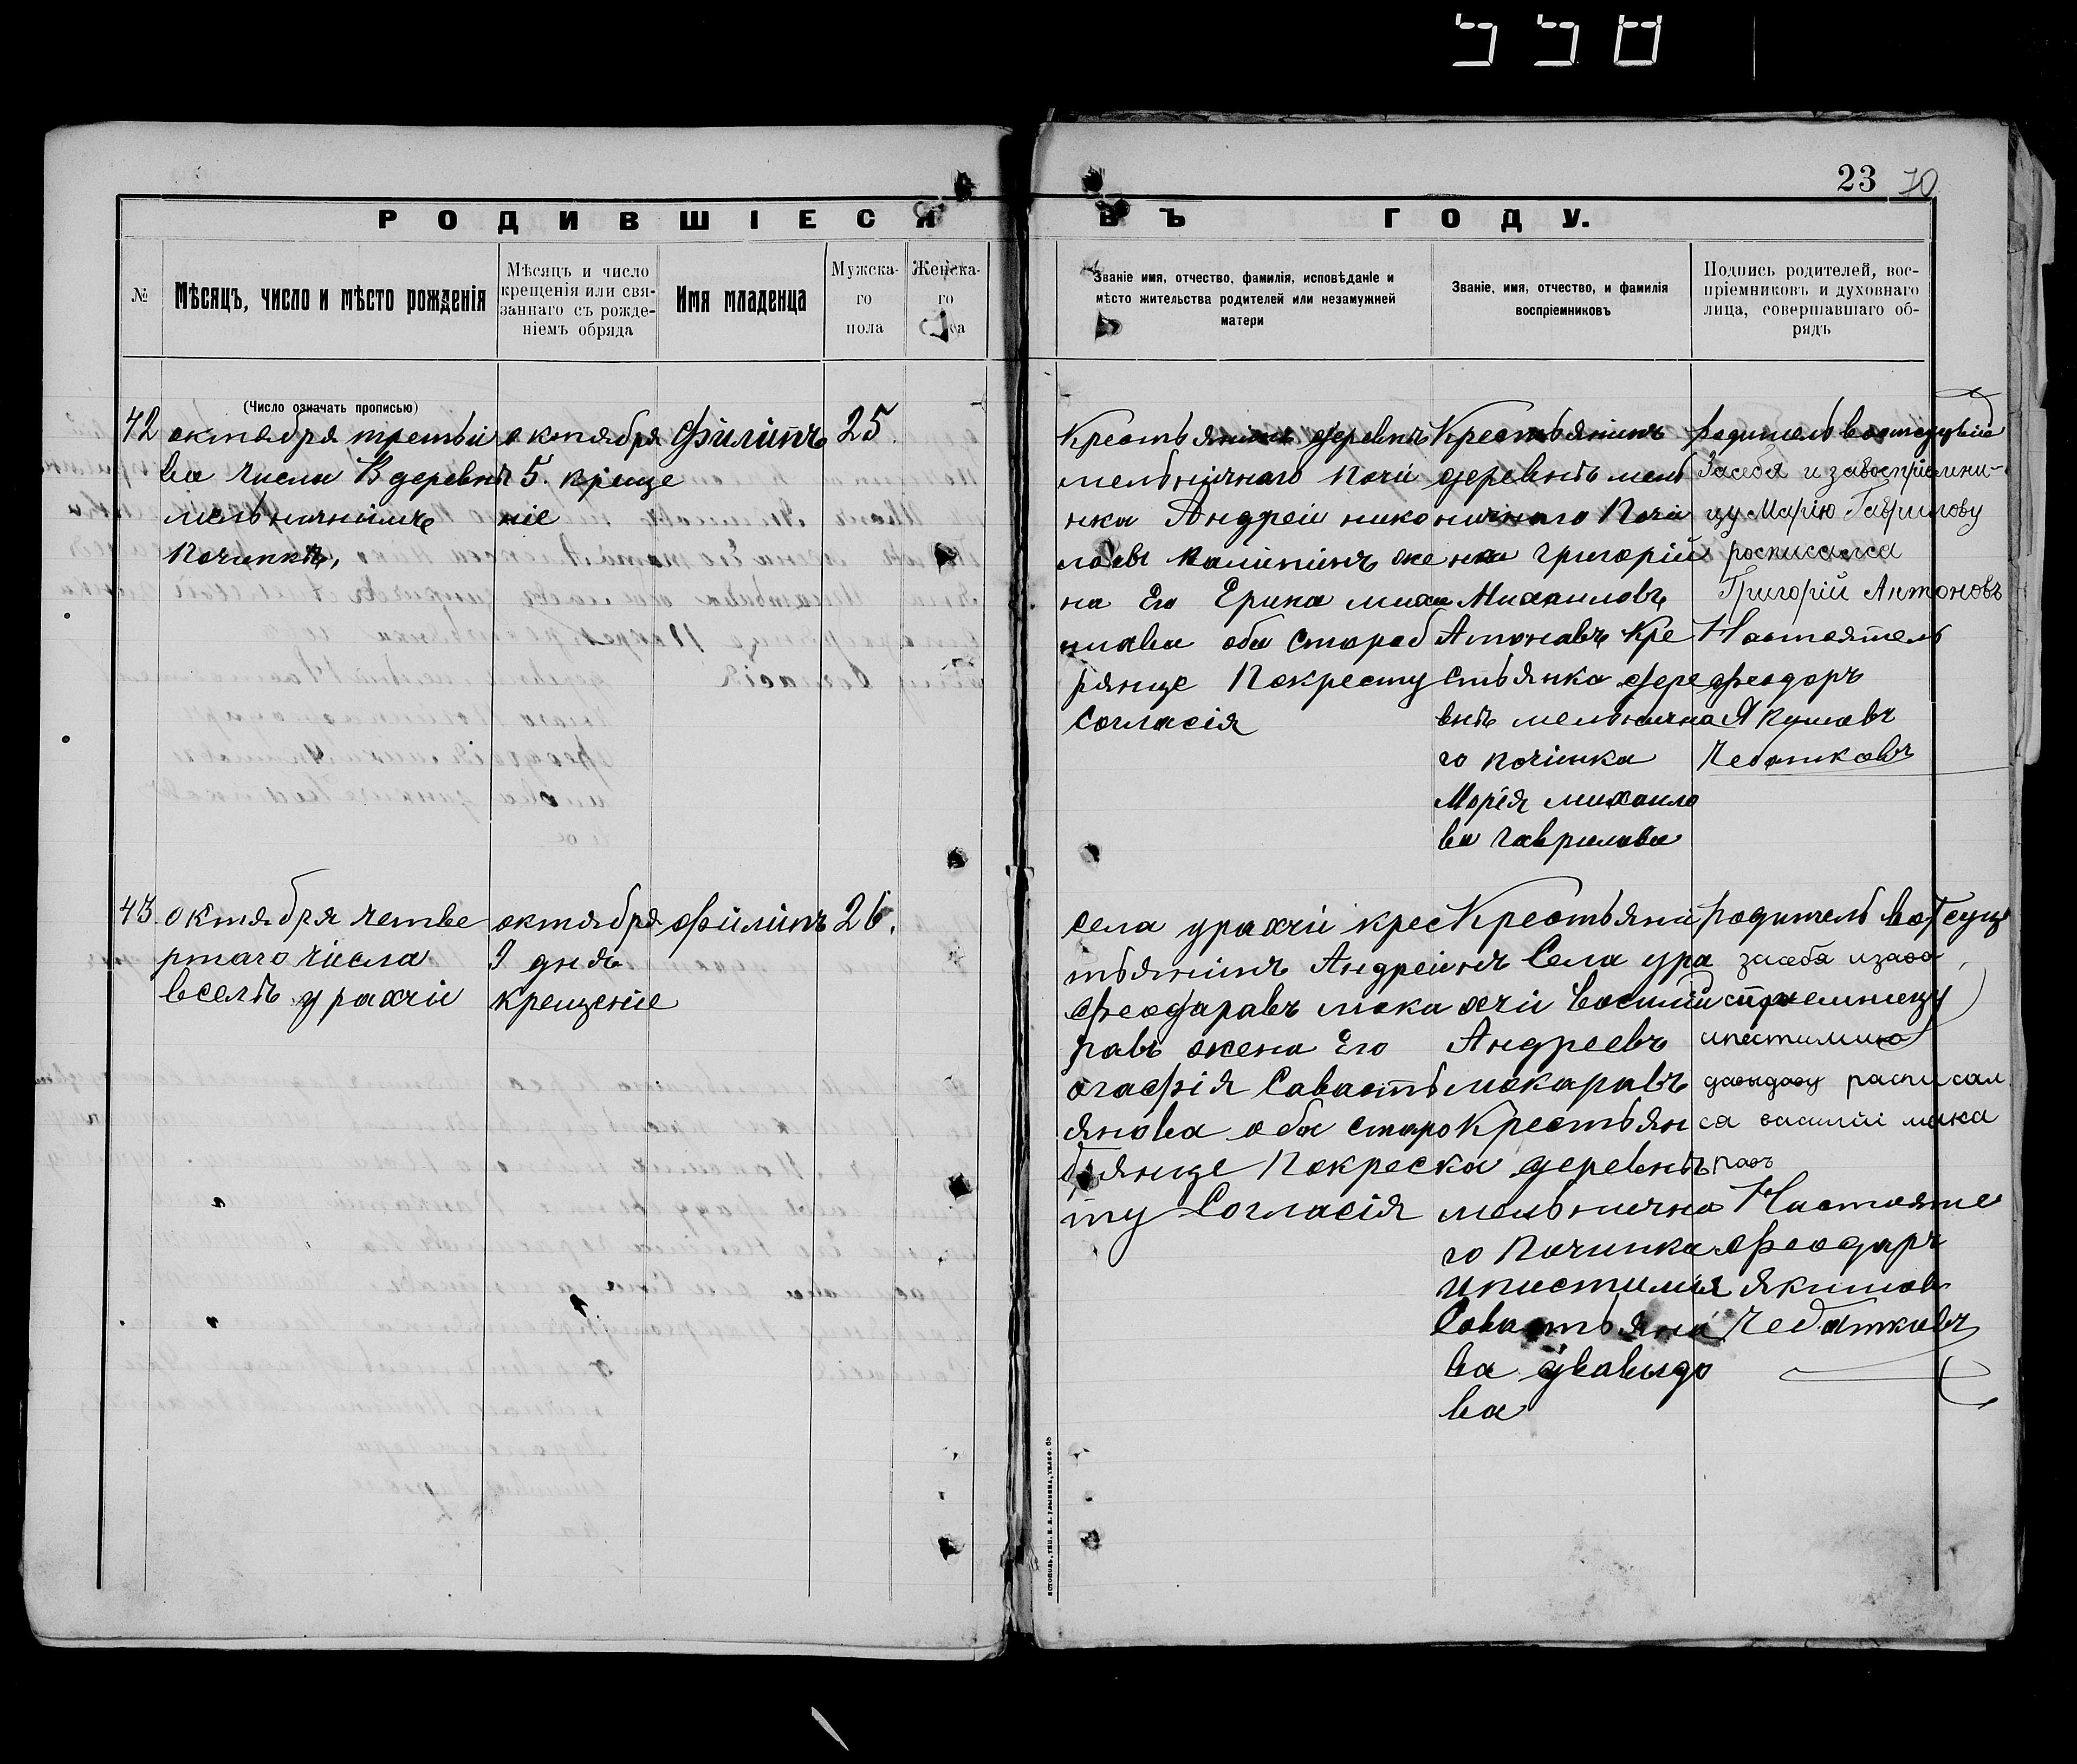 23 70
РОДИВШІЕСЯ ВЪ ГОДУ.
№
Мѣсяцъ, число и мѣсто рожденія
Мѣсяцъ и число
крещенія или свя-
заннаго съ рожде-
ніемъ обряда
Имя младенца
Мужска-
го
пола
Женска-
го
Званіе имя, отчество, фамилія, исповѣданіе и
мѣсто жительства родителей или незамужней
матери
Званіе, имя, отчество, и фамилія
воспріемниковъ
Подпись родителей, вос-
пріемниковъ и духовнаго
лица, совершавшаго об-
рядъ
(Число означать прописью)
42
октября третьи
ва числа В деревнѣ
мельничнимъ
Починкѣ,
октября
5. креще
ніе
Филипъ
25.
Крестьянинъ деревнѣ
мельничнаго Почи
нка Андреи нико
лаевъ Калининъ же
на Его Ерина миха
илава оба староб
рянце Покресту
Согласія
Крестьянинъ
деревнѣ мель
ничнаго Почи
нка Григорій
Михаиловъ
Атонавъ Кре
стьянка дере
внѣ мельнична
го починка
Марія михаило
ва гаврилова
родитель
За себя и за воспріемни-
цу Марію Гаврилову
росписался
Григорій Антоновъ
Настоятель
Феодоръ
Якумовъ
Чебатковъ
43.
октября четве
ртаго числа
в селѣ урахчи
октября
9 дня
крещеніе
Филипъ
26.
села урахчи крес
тьянинъ Андреи
Феодаравъ мака
равъ жена Его
огафія Савасть
янова оба старо
бянце Покрес
ту Согласія
Крестьяни
нъ Села ура
хчи Василій
Андреевъ
макаравъ
Крестьян
ка деревнѣ
мельнична
го Починка
ипистимия
Савастьяна
ва давыдо
ва
родитель
за себя и за во
спріемницу
ипестимию
давыдову расписал
са василии мака
равъ
Настояте
Феодаръ
Якимов
Чебатковъ